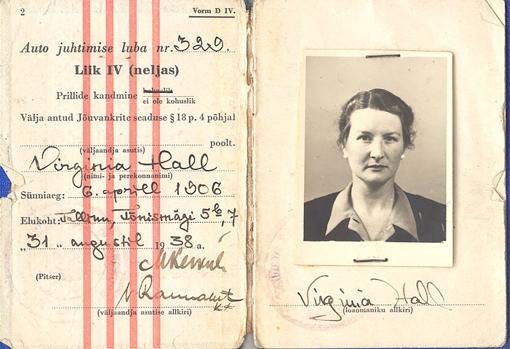 2
Vorm D IV.
Auto juhtimise luba nr. 329.
Liik IV (neljas)
Prillide kandmine kohuslik
ei ole kohuslik
Välja antud Jõuvankrite seaduse § 18 p. 4 põhjal
poolt.
(väljaandja asutis)
Virginia Hall
(nimi- ja perekonnanimi)
Sünniaeg: 6. aprill 1906
Elukoht: Tallinn, Tõnismägi 5
"31" augustil 1938 a.
(Pitser)
(väljaandja asutise allkiri)
Virginia Hall
(loaomaniku allkiri)